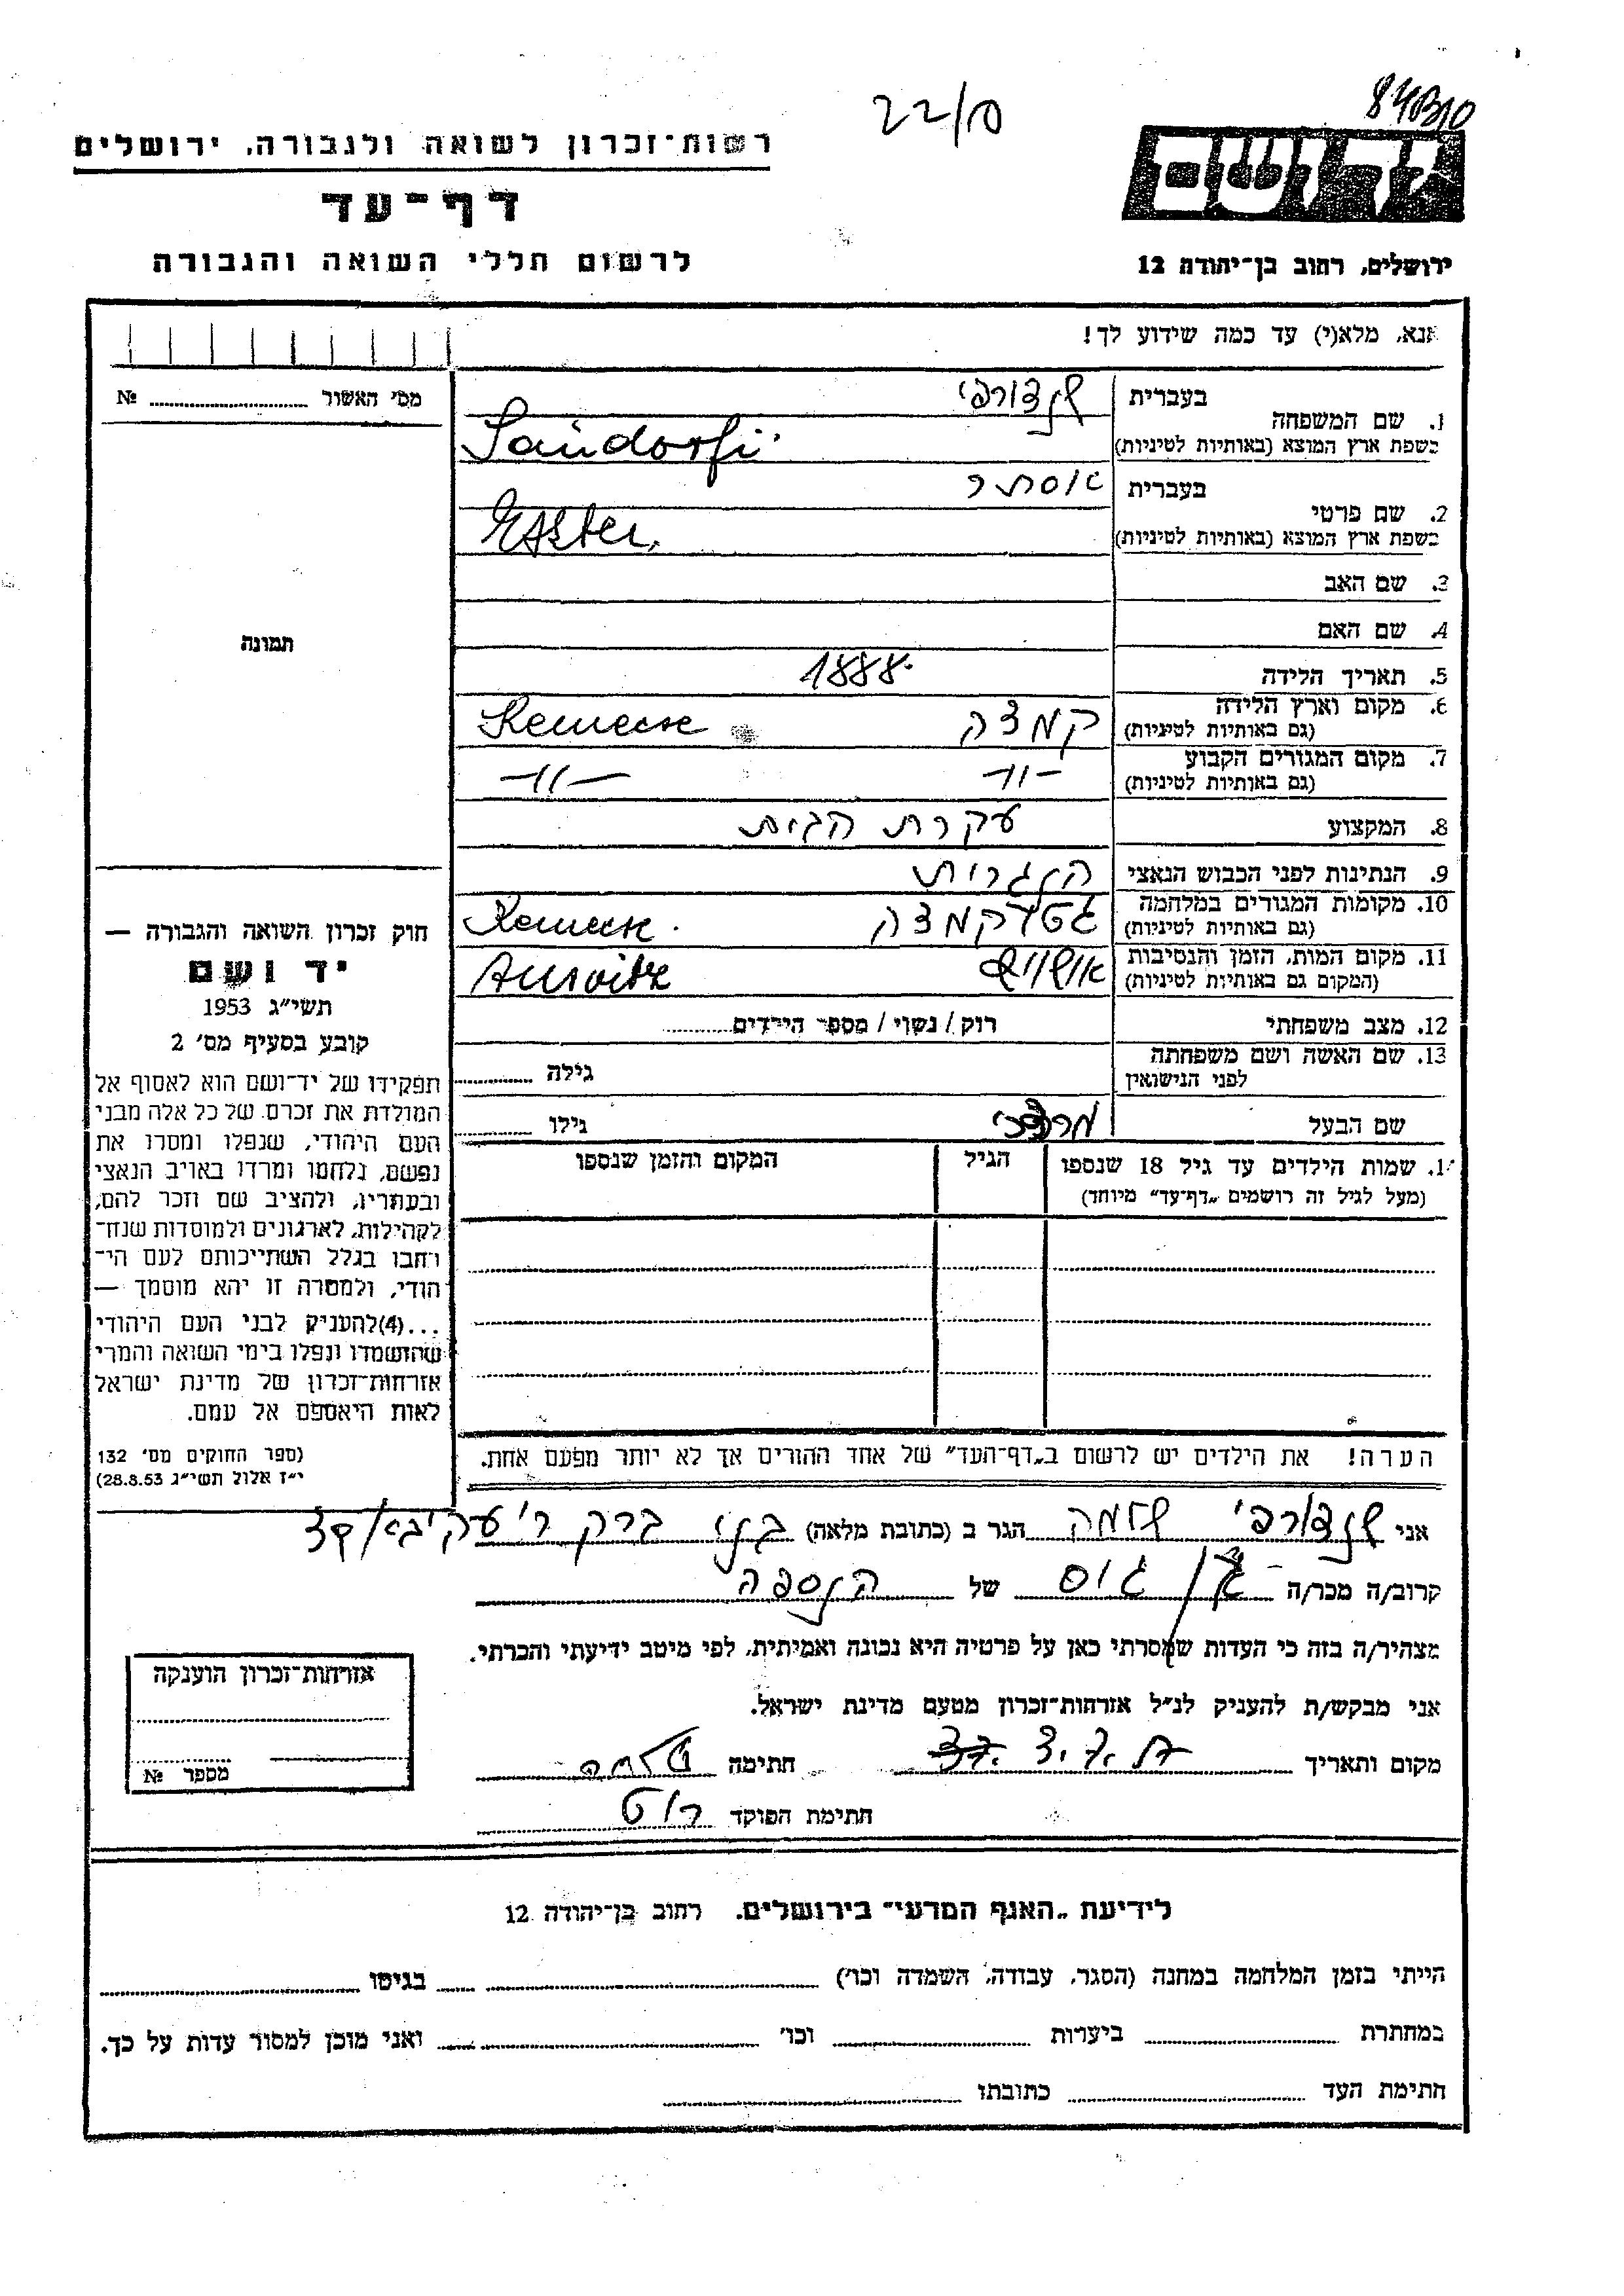 22/10
רשות־זכרון לשואה ולגבורה, ירושלים
דף־עד
לרשום חללי השואה והגבורה
ירושלים, רחוב בן־יהודה 12
אנא, מלא(י) עד כמה שידוע לך!
מס׳ האשור № 
1. שם המשפחה
בעברית שנדורפי
בשפת ארץ המוצא (באותיות לטיניות) Sandorfi
2. שם פרטי
בעברית אסתר
בשפת ארץ המוצא (באותיות לטיניות) Eszter
3. שם האב
4. שם האם
תמונה
5. תאריך הלידה 1888
6. מקום וארץ הלידה
(גם באותיות לטיניות) קמצה Kemecse
7. מקום המגורים הקבוע
(גם באותיות לטיניות) -״- -״-
8. המקצוע עקרת הבית
9. הנתינות לפני הכבוש הנאצי הונגרית
10. מקומות המגורים במלחמה
(גם באותיות לטיניות) גטו קמצה Kemecse
11. מקום המות, הזמן והנסיבות
(המקום גם באותיות לטיניות) אושויץ Auswitz
12. מצב משפחתי רוק / נשוי / מספר הילדים
13. שם האשה ושם משפחתה
לפני הנישואין גילה
שם הבעל מרדכי גילו
חוק זכרון השואה והגבורה —
יד ושם
תשי״ג 1953
קובע בסעיף מס׳ 2
תפקידו של יד־ושם הוא לאסוף אל
המולדת את זכרם של כל אלה מבני
העם היהודי, שנפלו ומסרו את
נפשם, נלחמו ומרדו באויב הנאצי
ובעוזריו, ולהציב שם וזכר להם,
לקהילות, לארגונים ולמוסדות שנח־
רבו בגלל השתייכותם לעם הי־
הודי, ולמטרה זו יהא מוסמך —
...(4)להעניק לבני העם היהודי
שהושמדו ונפלו בימי השואה והמרי
אזרחות־זכרון של מדינת ישראל
לאות היאספם אל עמם.
(ספר החוקים מס׳ 132
י״ז אלול תשי״ג 28.8.53)
14. שמות הילדים עד גיל 18 שנספו
(מעל לגיל זה רושמים „דף־עד״ מיוחד)
הגיל
המקום והזמן שנספו
הערה! את הילדים יש לרשום ב„דף־העד״ של אחד ההורים אך לא יותר מפעם אחת.
אני שנדורפי שלמה הגר ב (כתובת מלאה) בני ברק ר׳ עקיבא
קרוב/ה מכר/ה גיס של הנספה
מצהיר/ה בזה כי העדות שמסרתי כאן על פרטיה היא נכונה ואמיתית, לפי מיטב ידיעתי והכרתי.
אני מבקש/ת להעניק לנ״ל אזרחות־זכרון מטעם מדינת ישראל.
מקום ותאריך חתימה שלמה
חתימת הפוקד רוט
אזרחות־זכרון הוענקה
מספר №
לידיעת „האגף המדעי״ בירושלים. רחוב בן־יהודה 12
הייתי בזמן המלחמה במחנה (הסגר, עבודה, השמדה וכו׳) בגיטו
במחתרת ביערות וכו׳ ואני מוכן למסור עדות על כך.
חתימת העד כתובתו